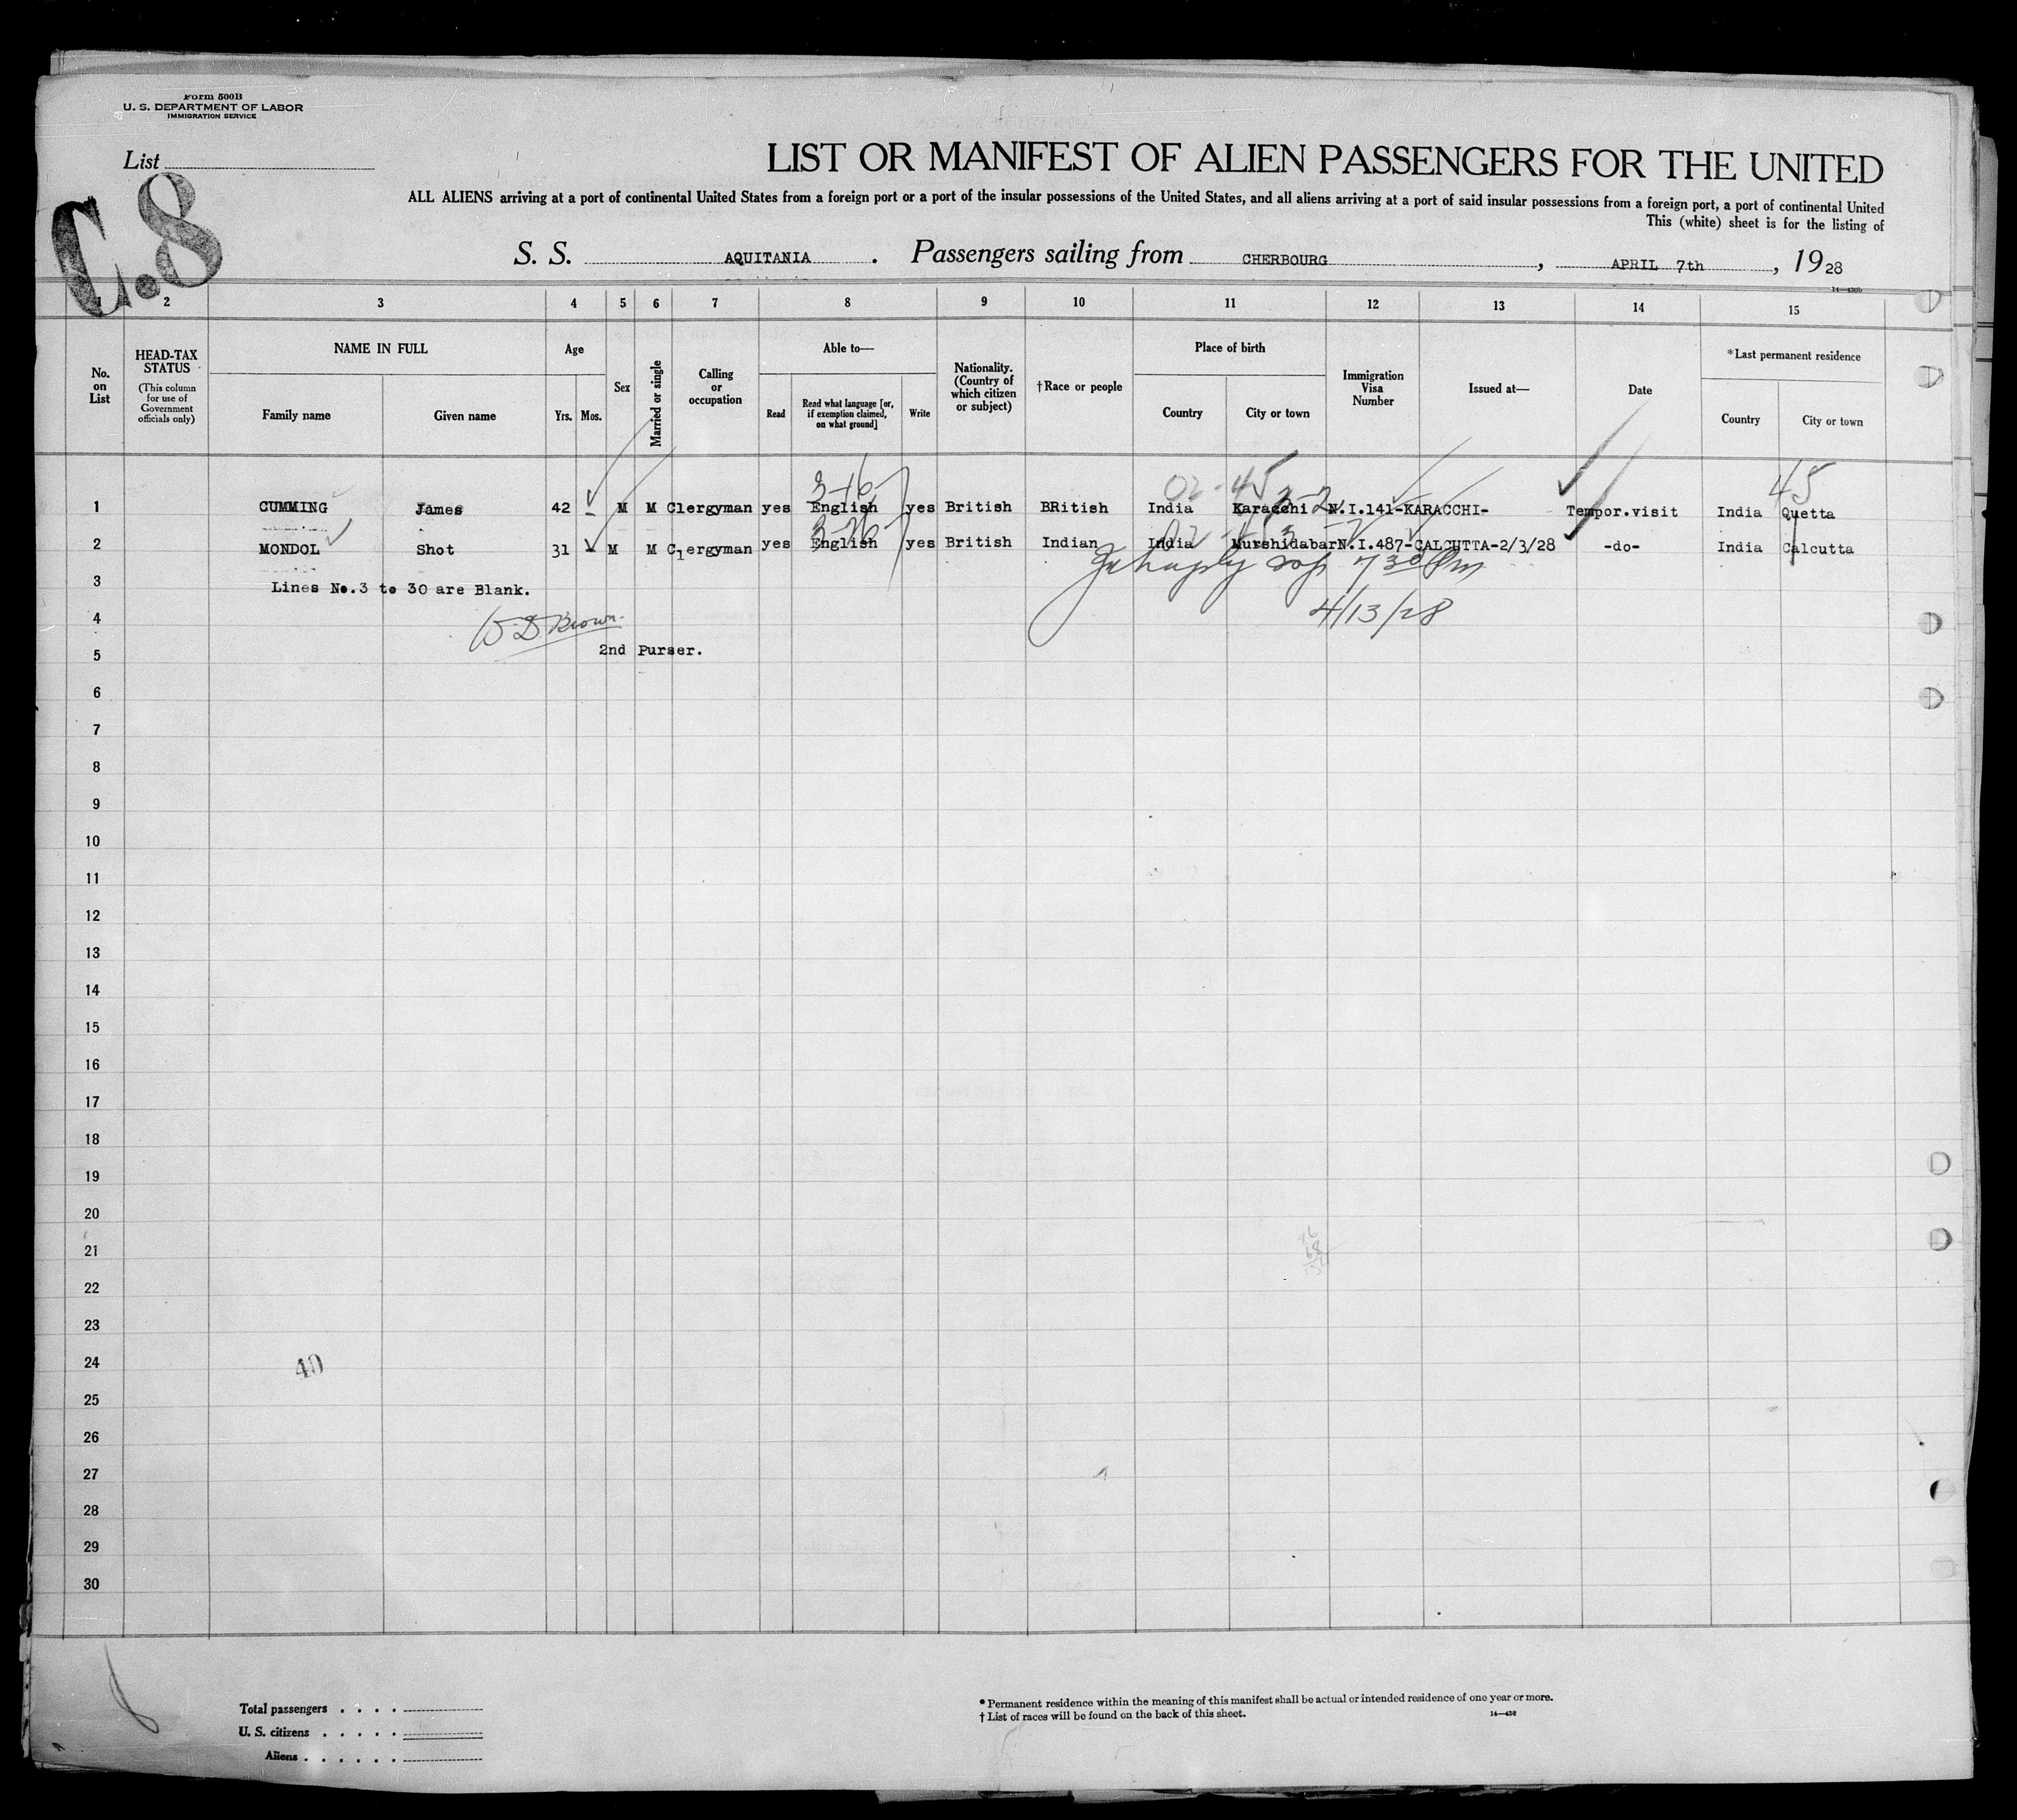 Form 500B
U. S. DEPARTMENT OF LABOR
IMMIGRATION SERVICE
List
C.8
LIST OR MANIFEST OF ALIEN PASSENGERS FOR THE UNITED
ALL ALIENS arriving at a port of continental United States from a foreign port or a port of the insular possessions of the United States, and all aliens arriving at a port of said insular possessions from a foreign port, a port of continental United
This (white) sheet is for the listing of
S. S. AQUITANIA . Passengers sailing from CHERBOURG , APRIL 7th , 19 28
1 2 3 4 5 6 7 8 9 10 11 12 13 14 15
No. on List
HEAD-TAX STATUS (This column for use of Government officials only)
NAME IN FULL
Family name Given name
Age
Yrs. Mos.
Sex
Married or single
Calling or occupation
Able to—
Read Read what language [or, if exemption claimed, on what ground] Write
Nationality. (Country of which citizen or subject)
†Race or people
Place of birth
Country City or town
Immigration Visa Number
Issued at—
Date
*Last permanent residence
Country City or town
3-16 02-45 3-2 45
1 CUMMING James 42 - M M Clergyman yes English yes British BRitish India Karachi N.I.141-KARACCHI- Tempor.visit India Quetta
3-26
2 MONDOL Shot 31 - M M Clergyman yes English yes British Indian India Murshidabar N.I.487-CALCUTTA-2/3/28 -do- India Calcutta
7 30 Pm
3 Lines No.3 to 30 are Blank.
4/13/28
4 W D Brown
5 2nd Purser.
6
7
8
9
10
11
12
13
14
15
16
17
18
19
20
21
22
23
24 40
25
26
27
28
29
30
Total passengers . . . .
U. S. citizens . . . . .
Aliens . . . . . .
* Permanent residence within the meaning of this manifest shall be actual or intended residence of one year or more.
† List of races will be found on the back of this sheet.